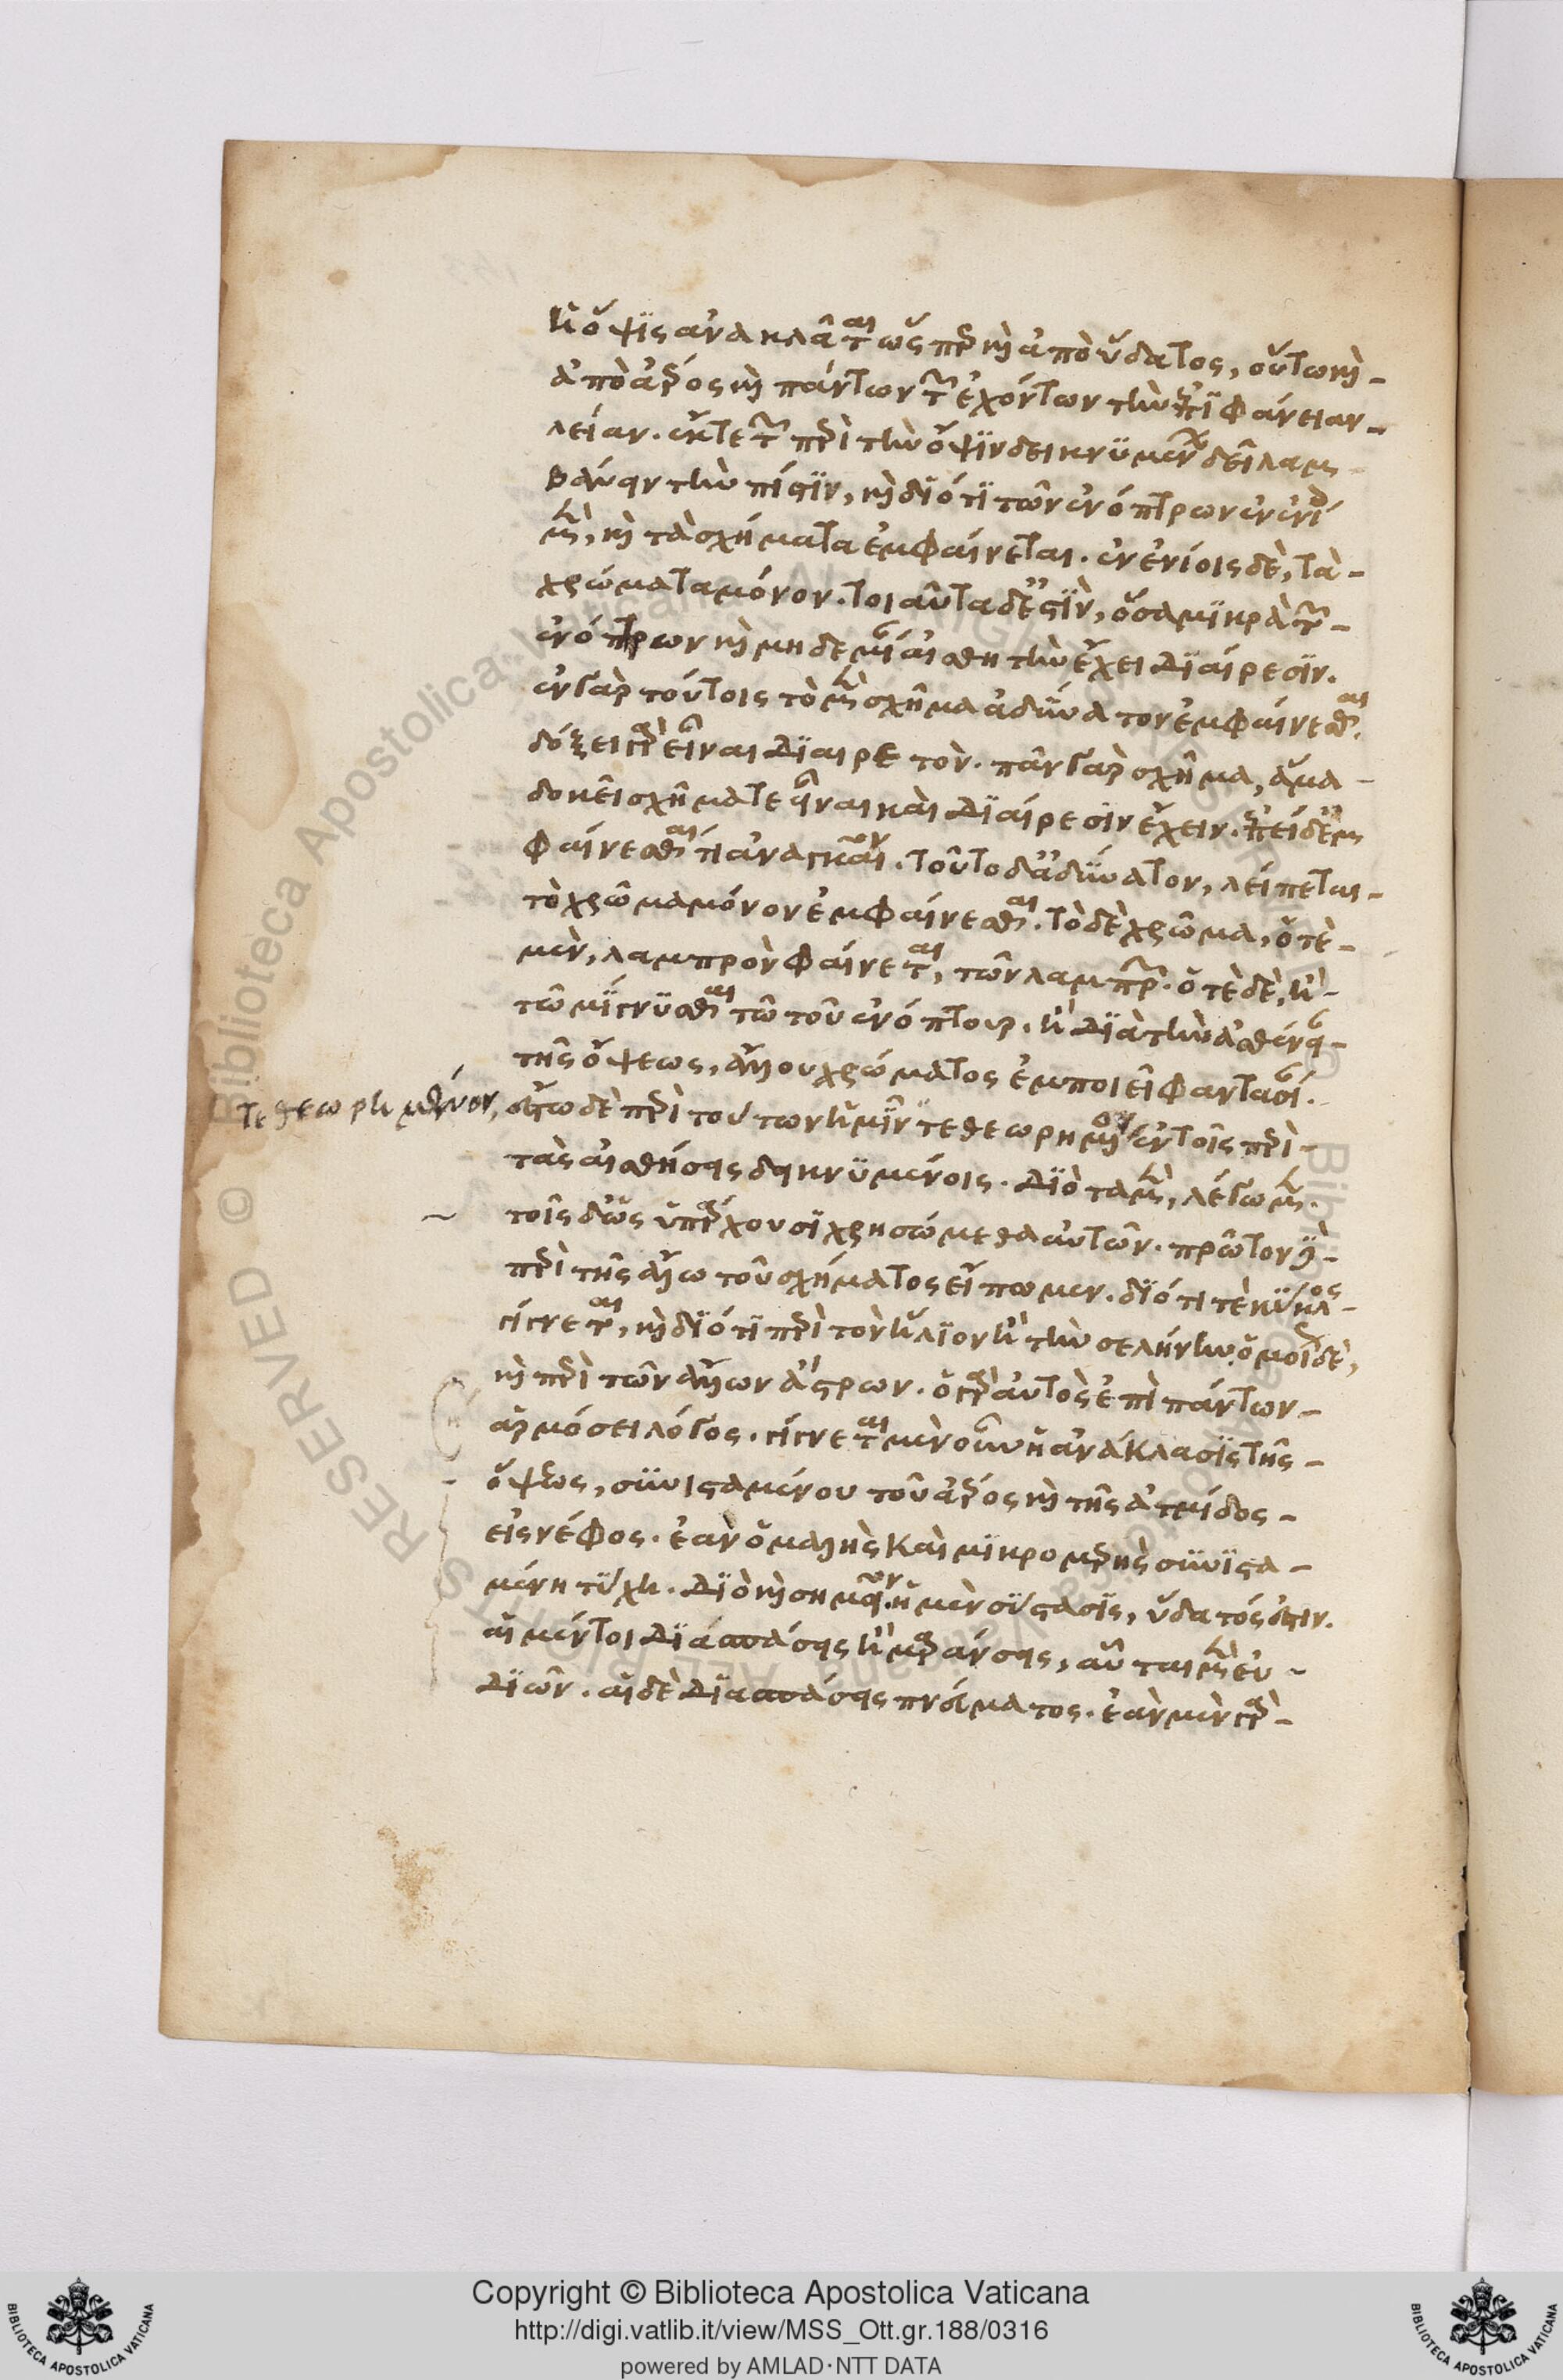 ἡ ὄψις ἀνακλᾶται ὥσπερ καὶ ἀπὸ ὕδατος, οὕτω καὶ
ἀπὸ ἀέρος καὶ πάντων τῶν ἐχόντων τὴν ἐπιφάνειαν
λείαν. ἔκ τε τῶν περὶ τὴν ὄψιν δεικνυμένων δεῖ λαμ
βάνειν τὴν πίστιν, καὶ διότι τῶν ἐνόπτρων ἐν ἐνίοις
μὲν, καὶ τὰ σχήματα ἐμφαίνεται. ἐν ἐνίοις δὲ, τὰ
χρώματα μόνον. τοιαῦτα δ' ἐστὶν, ὅσα μικρὰ τῶν
ἐνόπτρων καὶ μηδεμίαν αἰσθητὴν ἔχει διαίρεσιν.
ἐν γὰρ τούτοις τὸ μὲν σχῆμα ἀδύνατον ἐμφαίνεσθαι.
δόξει γὰρ εἶναι διαιρετόν. πᾶν γὰρ σχῆμα, ἅμα
δοκεῖ σχῆμα τε εἶναι καὶ διαίρεσιν ἔχειν. ἐπεὶ δ' ἐμ
φαίνεσθαί τι ἀναγκαῖον. τοῦτο δ' ἀδύνατον, λείπεται
τὸ χρῶμα μόνον ἐμφαίνεσθαι. τὸ δὲ χρῶμα, ὁτὲ
μὲν, λαμπρὸν φαίνεται, τῶν λαμπρῶν. ὁτὲ δὲ, ἢ
τῶ μίγνυσθαι τῶ τοῦ ἐνόπτρου. ἢ διὰ τὴν ἀσθένειαν
τῆς ὄψεως, ἄλλου χρώματος ἐμποιεῖ φαντασίαν.
τεθεωρημένον, ἔστω δὲ περὶ τούτων ἡμῖν τεθεωρημένον ἐν τοῖς περὶ
τὰς αἰσθήσεις δεικνυμένοις. διὸ τὰ μὲν, λέγωμεν.
τοῖς δ' ὡς ὑπάρχουσι χρησώμεθα αὐτῶν. πρῶτον δὲ
περὶ τῆς ἅλω τοῦ σχήματος εἴπωμεν. διότι τὲ κύκλος
γίγνεται, καὶ διότι περὶ τὸν ἥλιον ἢ τὴν σελήνην. ὁμοίως δὲ,
καὶ περὶ τῶν ἄλλων ἄστρων. ὁ γὰρ αὐτὸς ἐπὶ πάντων
ἁρμόσει λόγος. γίγνεται μὲν οὖν ἡ ἀνάκλασις τῆς
ὄψεως, συνισταμένου τοῦ ἀέρος καὶ τῆς ἀτμίδος
εἰς νέφος. ἐὰν ὁμαλὴς καὶ μικρομερὴς συνιστα
μένη τύχῃ. διὸ καὶ σημεῖον. ἡ μὲν σύστασις, ὕδατός ἐστιν.
αἱ μέντοι διασπάσεις ἢ μαράνσεις, αὗται μὲν εὐ
διῶν. αἱ δὲ διασπάσεις πνεύματος. ἐὰν μὲν γὰρ
Copyright © Biblioteca Apostolica Vaticana
http://digi.vatlib.it/view/MSS_Ott.gr.188/0316
powered by AMLAD·NTT DATA